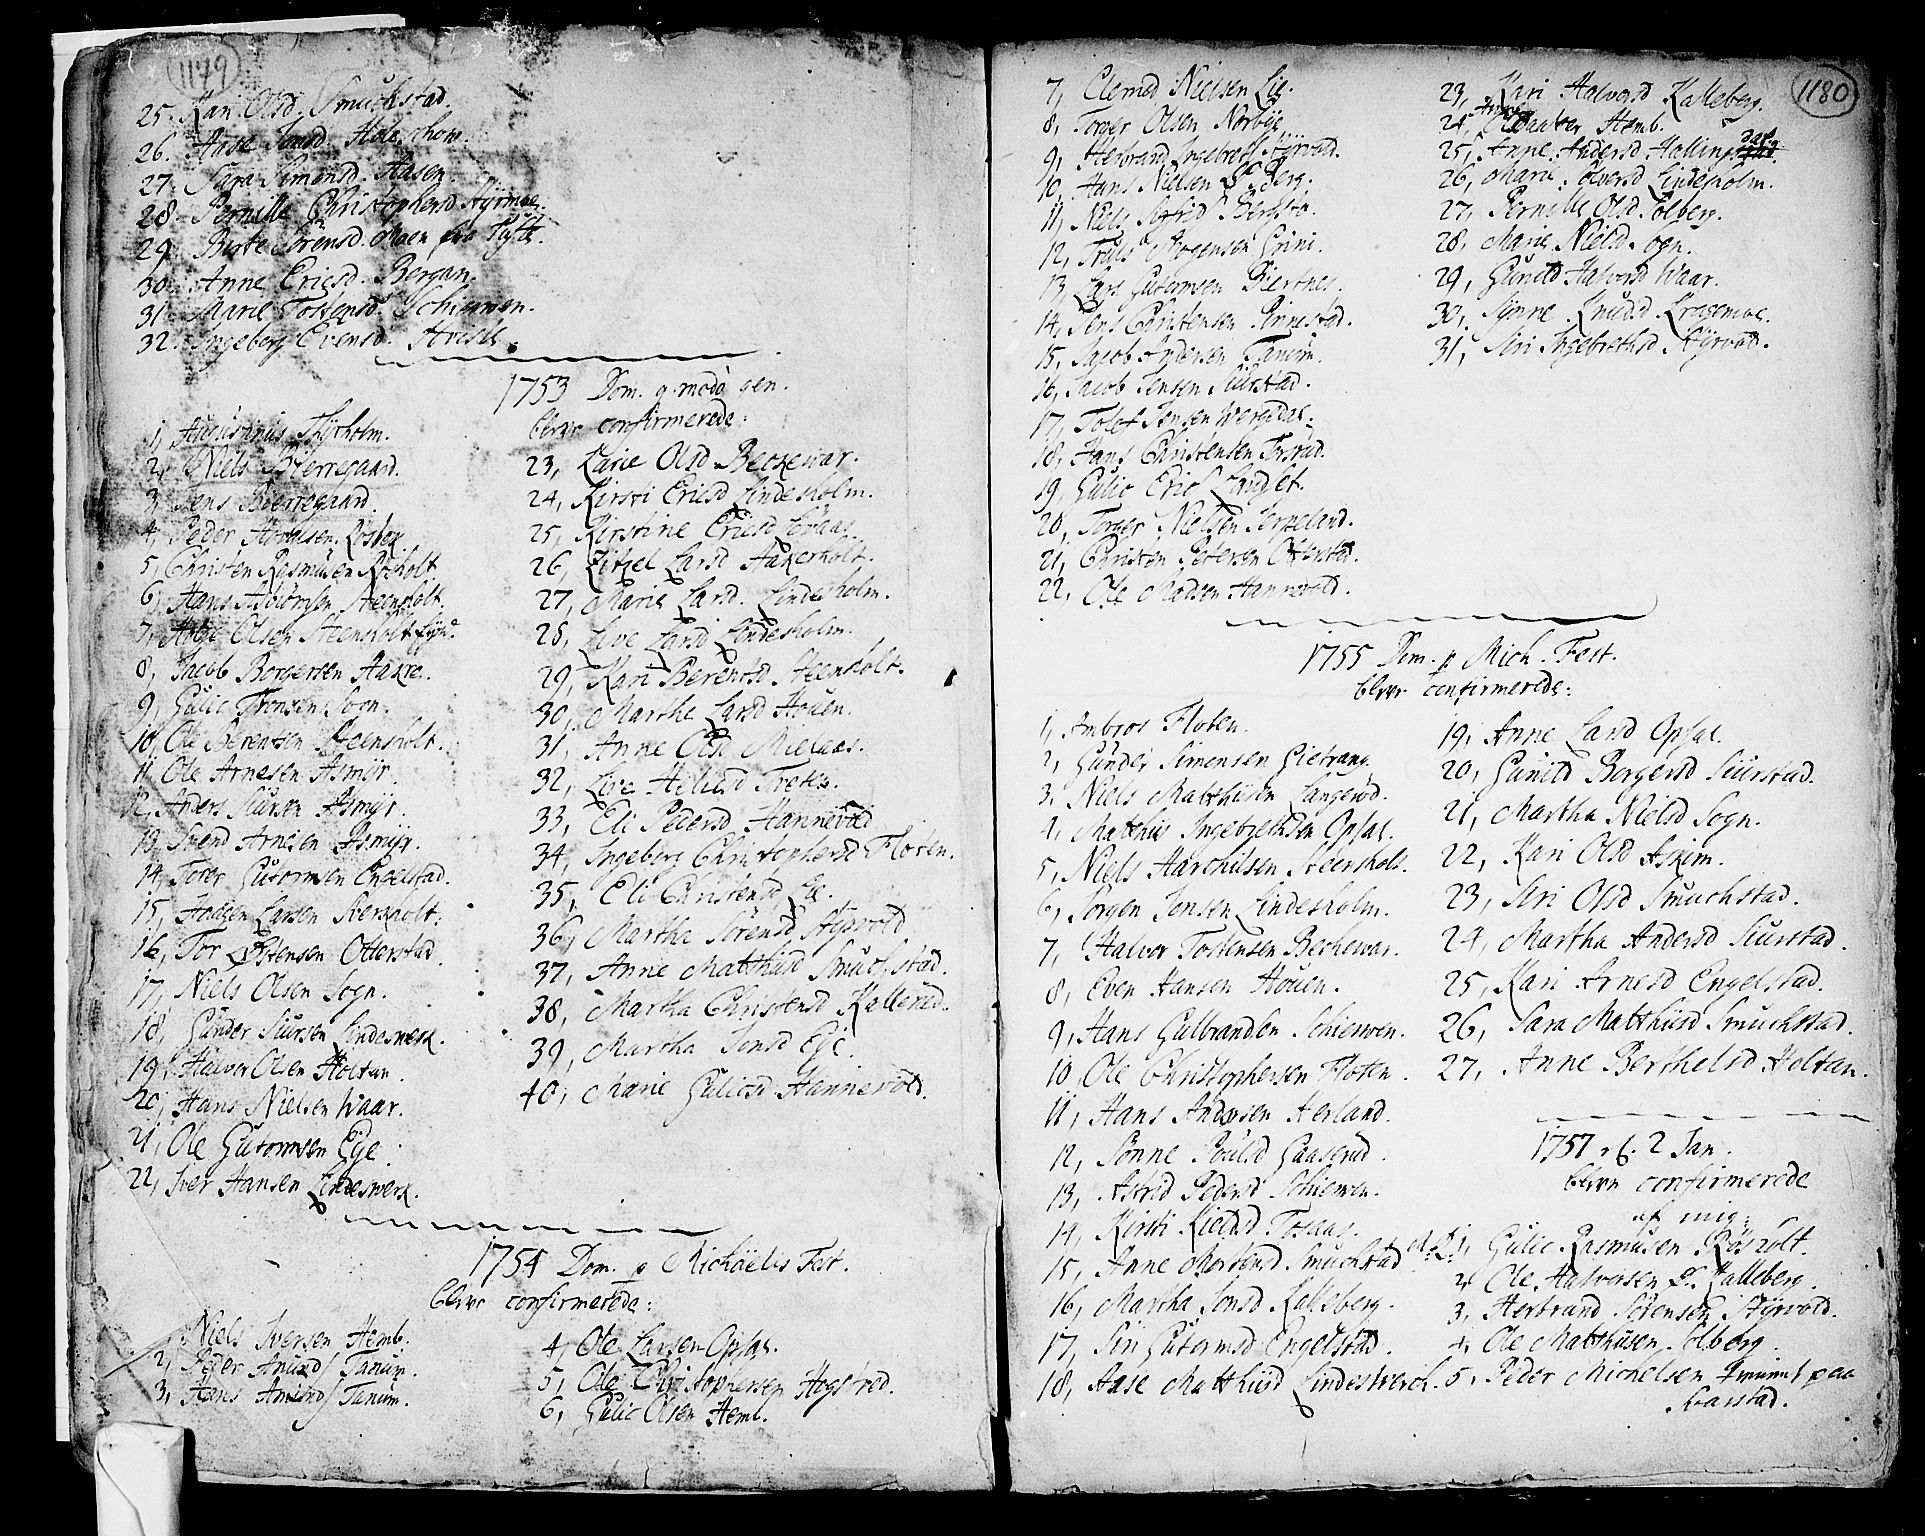 1179
25. Kari Olsd. Smuchstad.
26. Aase Jonsd.
27. Sara Simensd. Aasen
28. Pernille Christophersd Styrmoe.
29. Birte Sörensd. Moen fra Tufte.
30. Anne Ericsd. Bergan.
31. Marie Tostensd. Schiewen.
32. Ingeborg Evensd.
1753 Dom. q. modo gen.
blevne confirmerede:
1, Augustinus Thyrholm.
2, Niels Bierregaard.
3, Jens Bierregaard.
4, Peder
5, Christen Rasmusen Rösholt
6, Hans Asbiörnsen Steensholt.
7, Helge Olsen Steensholt
8, Jacob Borgersen Aakre.
9, Gulic Tronsen Sogn.
10, Ole Berentsen Steensholt.
11, Ole Arnesen Asmyr.
12, Anders Siursen Asmyr.
13, Svend Arnesen Asmyr.
14, Torer Gutormsen Engelstad.
15, Haagen Larsen
16, Tor Östensen Otterstad
17, Niels Olsen Sogn.
18, Gunder Siursen Lindeswerk.
19, Halvor Olsen Holtan.
20, Hans Nielsen Waar.
21, Ole Gutormsen Ege.
22, Iver Hansen Lindeswerk.
23, Karie Olsd Beckewar.
24, Kirsti Ericsd Lindesholm.
25, Kirstine Ericsd
26, Kitzel Larsd Aakerholt.
27, Marie Larsd. Lindesholm.
28, Live Larsd Lindesholm.
29, Kari Berentsd Steensholt.
30, Marthe Larsd Houen.
31, Anne Olsd
32, Live
33, Eli Pedersd Hannevold
34, Ingeborg Christophersd Floten.
35, Eli Christensd Lie.
36, Martha Sörensd Styrvold
37, Anne Matthisd Smuchstad.
38, Martha Christensd Kallerød.
39, Martha Jensd Ege.
40, Marie Gulicsd Hannevold.
1754 Dom. p Michaelis Fest.
blevne confirmerede:
1, Niels Iversen Hemb.
2, Peder Amunds Tanum.
3, Hans Amunds Tanum.
4, Ole Larsen Opsal.
5, Ole Christophersen Hogsröd.
6, Gulic Olsen Hemb.
1180
7, Clemed Nielsen Lie.
8, Torger Olsen Norbye
9, Herbrand Ingebrets Styrvold.
10, Hans Nielsen Berg.
11, Niels
12, Truls Mogensen Grini.
13, Lars Gutormsen Biertnes.
14, Jens Christensen Rinnestad.
15, Jacob Andersen Tanum.
16, Jacob Jensen Siurstad.
17, Tolof Jensen
18, Hans Christensen
19, Gulic Erics Langlet.
20, Torger Nielsen
21, Christen Petersen Otterstad.
22, Ole Madsen Hannevold.
23, Kari Halvorsd Kalleberg.
24, Hemb.
25, Anne Andersd
26, Marie Lindesholm.
27, Pernille Olsd Solberg.
28, Marie Nielsd. Sogn.
29, Gunild Halvorsd Waar.
30, Synne Knudsd Kragemoe.
31, Siri Ingebrethsd Styrvold.
1755 Dom. p Mich. Fest.
blevne confirmerede:
1, Ambros Floten.
2, Gunder Simensen Gietrang.
3, Niels Matthisen Langeröd.
4, Matthis Ingebrethsen Opsal.
5, Niels Steensholt.
6, Jörgen Jensen Lindesholm.
7, Halvor Tostensen Beckewar.
8, Even Hansen Houen.
9, Hans Gulbrandsen Schiewen.
10, Ole Christophersen Floten.
11, Hans Andersen Herland.
12, Sönne Poulsd Gaaserud.
13, Astrid Pedersd Schiewen.
14, Kirsti Kieldsd Foscaas.
15, Anne Mortensd Smuchstad
16, Martha Jonsd Kalleberg.
17, Siri Gutormsd Engelstad.
18, Aase Matthisd Lindeswerch.
19, Anne Larsd Opsal.
20, Gunild Borgersd Siurstad.
21, Martha Nielsd Sogn.
22, Kari Olsd Askim.
23, Siri Olsd Smuchstad.
24, Martha Andersd Siurstad.
25, Kari Arnesd Engelstad.
26, Sara Matthisd Smuchstad.
27, Anne Berthelsd Holtan.
1757 2 Jan.
blevne confirmerede
af mig:
1, Gulic Rasmusen Rösholt.
2, Ole Halvorsen Kalleberg.
3, Herbrand Sörensen Styrvold.
4, Ole Matthisen Solberg.
5, Peder Michelsen paa
Barstad.